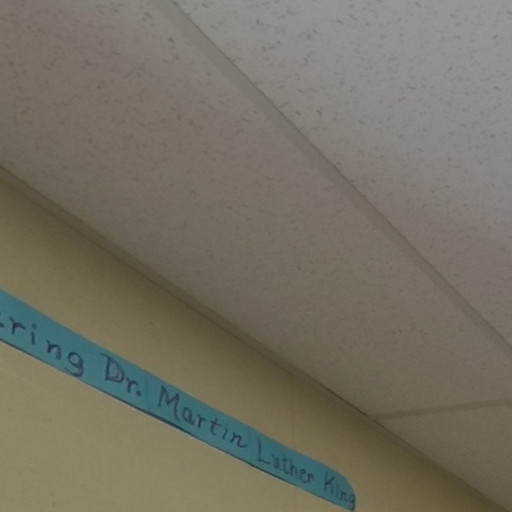 ring Dr. Martin Luther King